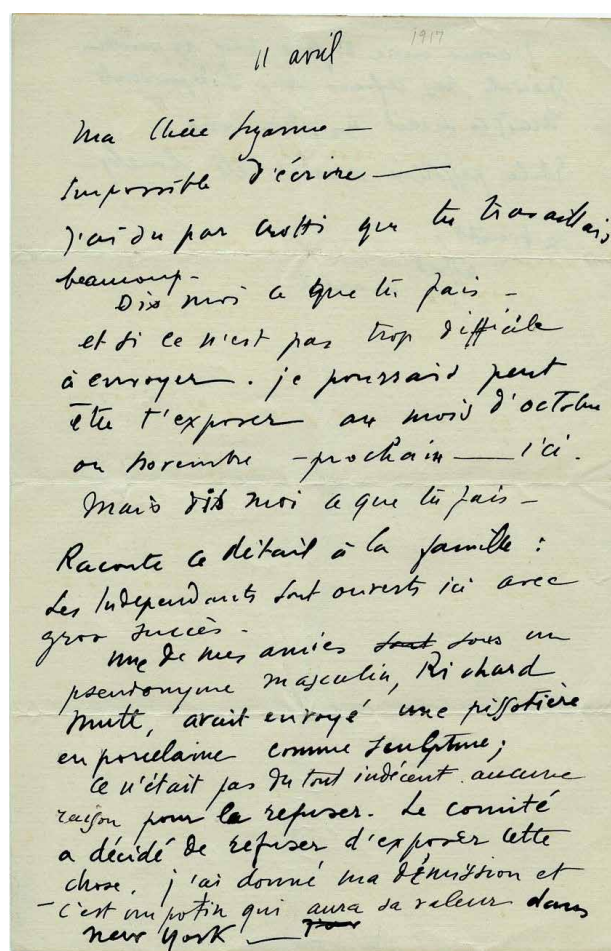 1917
11 avril
Ma chère Suzanne –
Impossible d'écrire –
J'ai su par Crotti que tu travaillais
beaucoup.
Dis moi ce que tu fais –
et si ce n'est pas trop difficile
à envoyer. je pourrais peut
être t'exposer au mois d'octobre
ou novembre – prochain – ici.
Mais dis moi ce que tu fais –
Raconte ce détail à la famille :
Les Indépendants sont ouverts ici avec
gros succès.
Une de mes amies sous un
pseudonyme masculin, Richard
Mutt, avait envoyé une pissotière
en porcelaine comme sculpture;
ce n'était pas du tout indécent aucune
raison pour la refuser. Le comité
a décidé de refuser d'exposer cette
chose. j'ai donné ma démission et
– c'est un potin qui aura sa valeur dans
New York –